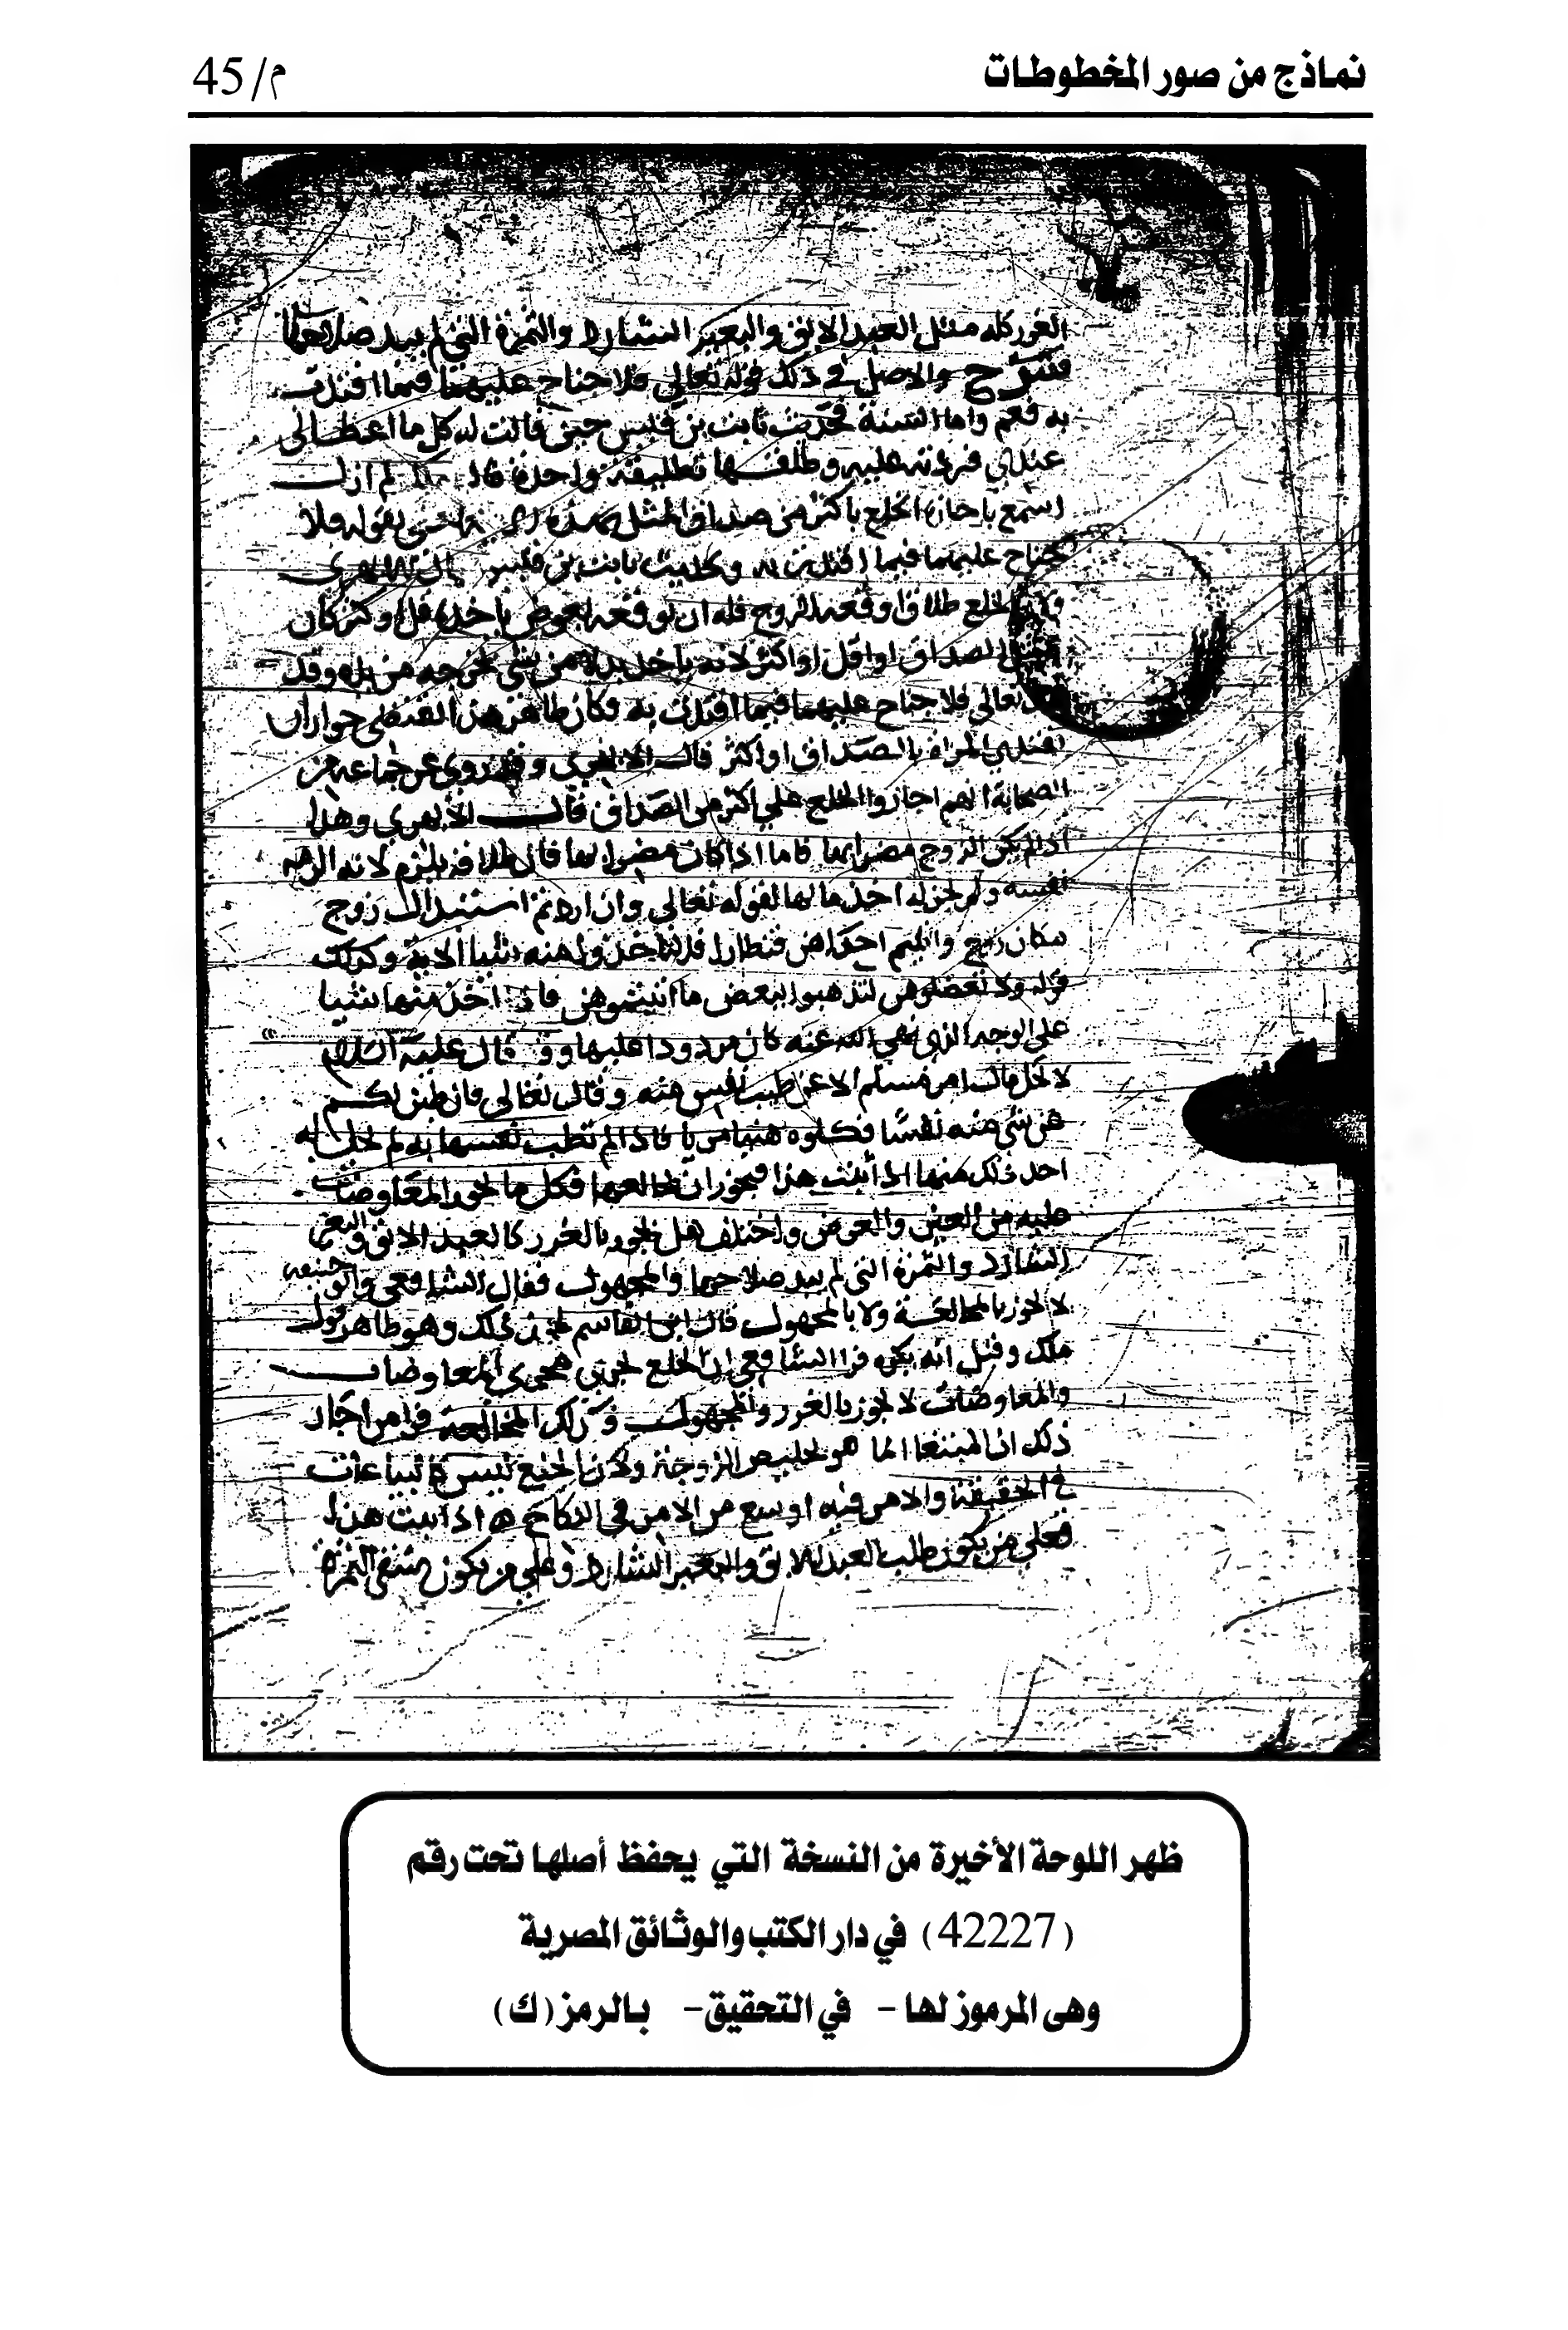 نماذج من صور المخطوطات
م/45
الغرر كله مثل العبد الابق والبعير الشارد والثمرة التي لم يبد صلاحها
شرح والاصل في ذلك قوله تعالى فلا جناح عليهما فيما افتدت
به فعم واما السنة فحديث ثابت بن قيس حين قالت له كل ما اعطاني
عندي فرده عليه وطلقها تطليقة واحدة قال لم ازل
اسمع باجازة الخلع باكثر من صداق المثل بهذه لقوله فلا
جناح عليهما فيما افتدت به وحديث ثابت بن قيس قال الابهري
الخلع طلاق اوقعه الزوج فله ان يوقعه بعوض ياخذه قل او كثر كان
الصداق او اقل او اكثر لانه ياخذ بدله من شي يخرجه من يده وقد
تعالى فلا جناح عليهما فيما افتدت به فكان ظاهر هذا اللفظ جواز ان
تفتدي المراة بالصداق او اكثر قال الابهري وقد روي عن جماعة من
الصحابة انهم اجازوا الخلع على اكثر من الصداق قال الابهري وهذا
اذا لم يكن الزوج مضرا بها فاما اذا كان مضرا بها فان طلاقه يلزم لانه الزمه
نفسه ولم يجز له اخذ مالها لقوله تعالى وان اردتم استبدال زوج
مكان زوج واتيتم احداهن قنطارا فلا تاخذوا منه شيا الاية وكذلك
قوله ولا تعضلوهن لتذهبوا ببعض ما اتيتموهن فاذا اخذ منها شيا
على الوجه الذي نهى الله عنه كان مردودا عليها وقد قال عليه السلام
لا يحل مال امر مسلم الا عن طيب نفس منه وقال تعالى فان طبن لكم
عن شي منه نفسا فكلوه هنيا مريا فاذا لم تطب نفسها به لم يحل له
اخذ ذلك منها اذا ثبت هذا فيجوز ان يخالعها فكل ما تجوز المعاوضات
عليه من العين والعرض واختلف هل يجوز بالغرر كالعبد الابق والبعير
الشارد والثمرة التي لم يبد صلاحها والمجهول فقال الشافعي وابو حنيفه
لا تجوز المخالعة ولا بالمجهول قال ابن القاسم يجوز ذلك وهو ظاهر قول
ملك وقيل انه يكره فراا الشافعي ان الخلع يجري مجرى المعاوضات
والمعاوضات لا تجوز بالغرر والمجهول وكذلك المخالعة فرا من اجاز
ذلك ان المبتغا انما هو تخليص الزوجة ولان الخلع ليس كالبياعات
في الحقيقة والامر فيه اوسع من الامر في النكاح ه اذا ثبت هذا
فعلى من يكون طلب العبد الابق والبعير الشارد وعلى من يكون سقي الثمرة
ظهر اللوحة الأخيرة من النسخة التي يحفظ أصلها تحت رقم
(42227) في دار الكتب والوثائق المصرية
وهى المرموز لها - في التحقيق - بالرمز (ك)